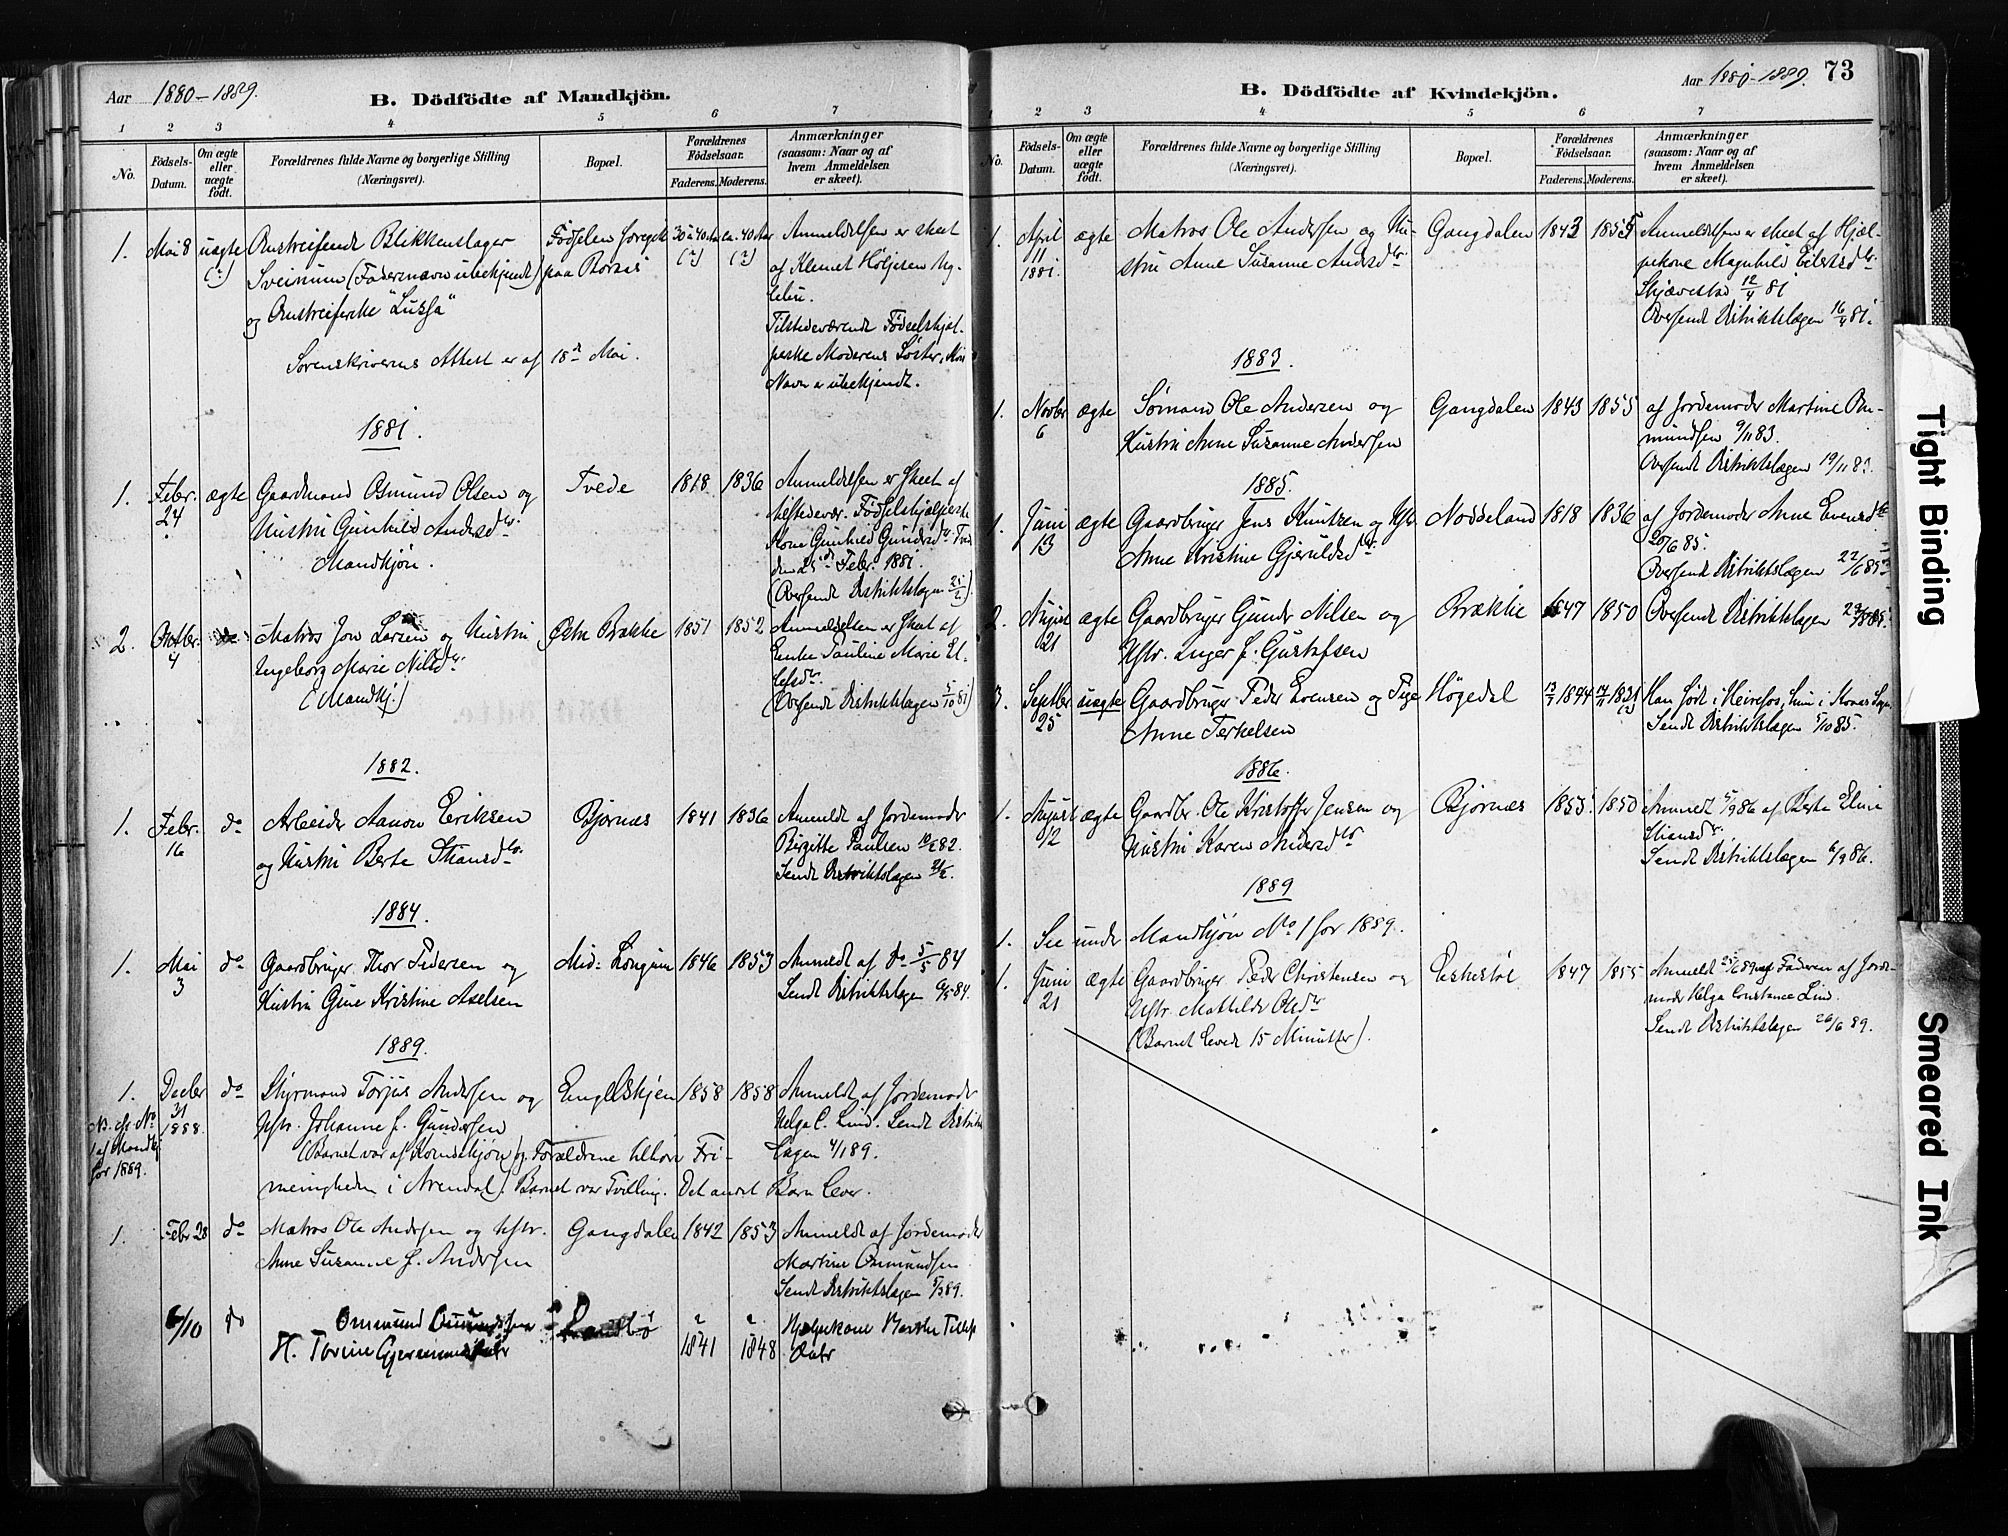 Aar 1880-1889.
B. Dödfödte af Mandkjön.
1 2 3 4 5 6 7
No.
Födsels-Datum.
Om ægte eller uægte födt.
Forældrenes fulde Navne og borgerlige Stilling (Næringsvei).
Bopæl.
Forældrenes Födselsaar.
Faderens. Moderens.
Anmærkninger (saasom: Naar og af hvem Anmeldelsen er skeet).
1. Mai 8 uægte (?) Omstreifende Blikkenslager Fødselen foregik 30 à 40 Aar (?) ca. 40 Aar (?) Anmeldelsen er skeet
Sveinum (Fadernavn ubekjendt) paa Borsæ af Klemet Høljesen
og Omstreiferske "Lussa"
Tilstedeværende Fødselshjæl-
perske Moderens Søster, hvis
Navn er ubekjendt.
Sorenskriverens Attest er af 18de Mai.
1881.
1. Febr. 24 ægte Gaardmand Osmund Olsen og Tvede 1818 1836 Anmeldelsen er skeet af
Hustru Gunhild Andersdtr. tilstedevær. Fødselshjælperske
Mandkjön. Kone Gunhild Gundersdtr. Tvede
den 25de Febr. 1881.
(Oversendt Distriktslægen 25/2).
2. Oktbr. 4 do Matros Jon Larsen og Hustru Østre Brække 1851 1852 Anmeldelsen er skeet af
Ingeborg Marie Nilsdtr. Enke Pauline Marie El-
(Mandkj.) lefsdtr.
(Oversendt Distriktslægen 5/10 81)
1882.
1. Febr. 16 do Arbeider Aanon Eriksen Bjørnæs 1841 1836 Anmeldt af Jordemoder
og Hustru Berte Stiansdtr. Birgitte Paulsen 18/2 82.
Sendt Distriktslægen 21/2.
1884.
1. Mai 3 do Gaardbruger Thor Pedersen og Mid: Longum 1846 1853 Anmeldt af do 5/5 84
Hustru Gine Kristine Axelsen Sendt Distriktslægen 6/5 84.
1889.
1. Decbr 31 1888. do Styrmand Torjus Andersen og Engelskjen 1858 1858 Anmeldt af Jordemoder
No. 1 af Mandkj. for 1889. Hstr. Johanne f. Gundersen Helga C. Lind. Sendt Distrikts-
(Barnet var af Kvindekjøn og Forældrene tilhøre Fri- lægen 4/1 89.
menigheden i Arendal). Barnet var Tvilling. Det andet Barn lever.
1. Febr 28 do Matros Ole Andersen og Hstr. Gangdalen 1842 1853 Anmeldt af Jordemoder
Anne Susanne f. Andersen Martine Osmundsen
Sendt Distriktslægen 5/3 89.
6/10 do Omsmund Osmundsen
H. Torine 1841 1848 Hjelpekone
B. Dödfödte af Kvindekjön.
Aar 1880-1889. 73
1 2 3 4 5 6 7
No.
Födsels-Datum.
Om ægte eller uægte födt.
Forældrenes fulde Navne og borgerlige Stilling (Næringsvei).
Bopæl.
Forældrenes Födselsaar.
Faderens. Moderens.
Anmærkninger (saasom: Naar og af hvem Anmeldelsen er skeet).
1. April 11 1881. ægte Matros Ole Andersen og Hu- Gangdalen 1843 1855 Anmeldelsen er skeet af Hjæl-
stru Anne Susanne Andersdtr. pekone Magnhild Eilertsdtr.
Skjævestad 12/4 81
Oversendt Distriktslægen 16/4 81.
1883.
1. Novbr 6 ægte Sømand Ole Andersen og Gangdalen 1843 1855 af Jordemoder Martine Os-
Hustru Anne Susanne Andersen mundsen 9/11 83.
Oversendt Distriktslægen 19/11 83.
1885.
1. Juni 13 ægte Gaardbruger Jens Knutsen og Hstr. Noddeland 1818 1836 af Jordemoder Anne Evensdtr
Anne Kristine Gjeruldsdtr. 20/6 85.
Oversendt Distriktslægen 22/6 85
2. August 21 ægte Gaardbruger Gunder Nilsen og Brække 1847 1850 Oversendt Distriktslægen 22/8 85.
Hstr. Inger f. Gustafsen
3. Septbr 25 uægte Gaardbruger Peder Evensen og Pige Høgedal 13/7 1844 14/11 1831 (?) Han født i Heirefos, hun i
Anne Terkelsen Sendt Distriktslægen 5/10 85.
1886.
1. August 12 ægte Gaardbr. Ole Kristoffer Jensen og Bjørnæs 1855 1850 Anmeldt 5/9 86 af Berte Eline
Hustru Karen Andersdtr Stiansdtr.
Sendt Distriktslægen 6/9 86.
1889
1. See under Mandkjøn No 1 for 1889.
1. Juni 21 ægte Gaardbruger Peder Christensen og Eskestøl 1847 1855 Anmeldt 25/6 89 af Faderen af Jorde-
Hstr. Mathilde Olsdtr moder Helga Constance Lind.
(Barnet levede 15 Minutter). Sendt Distriktslægen 26/6 89.
Tight Binding
Smeared Ink